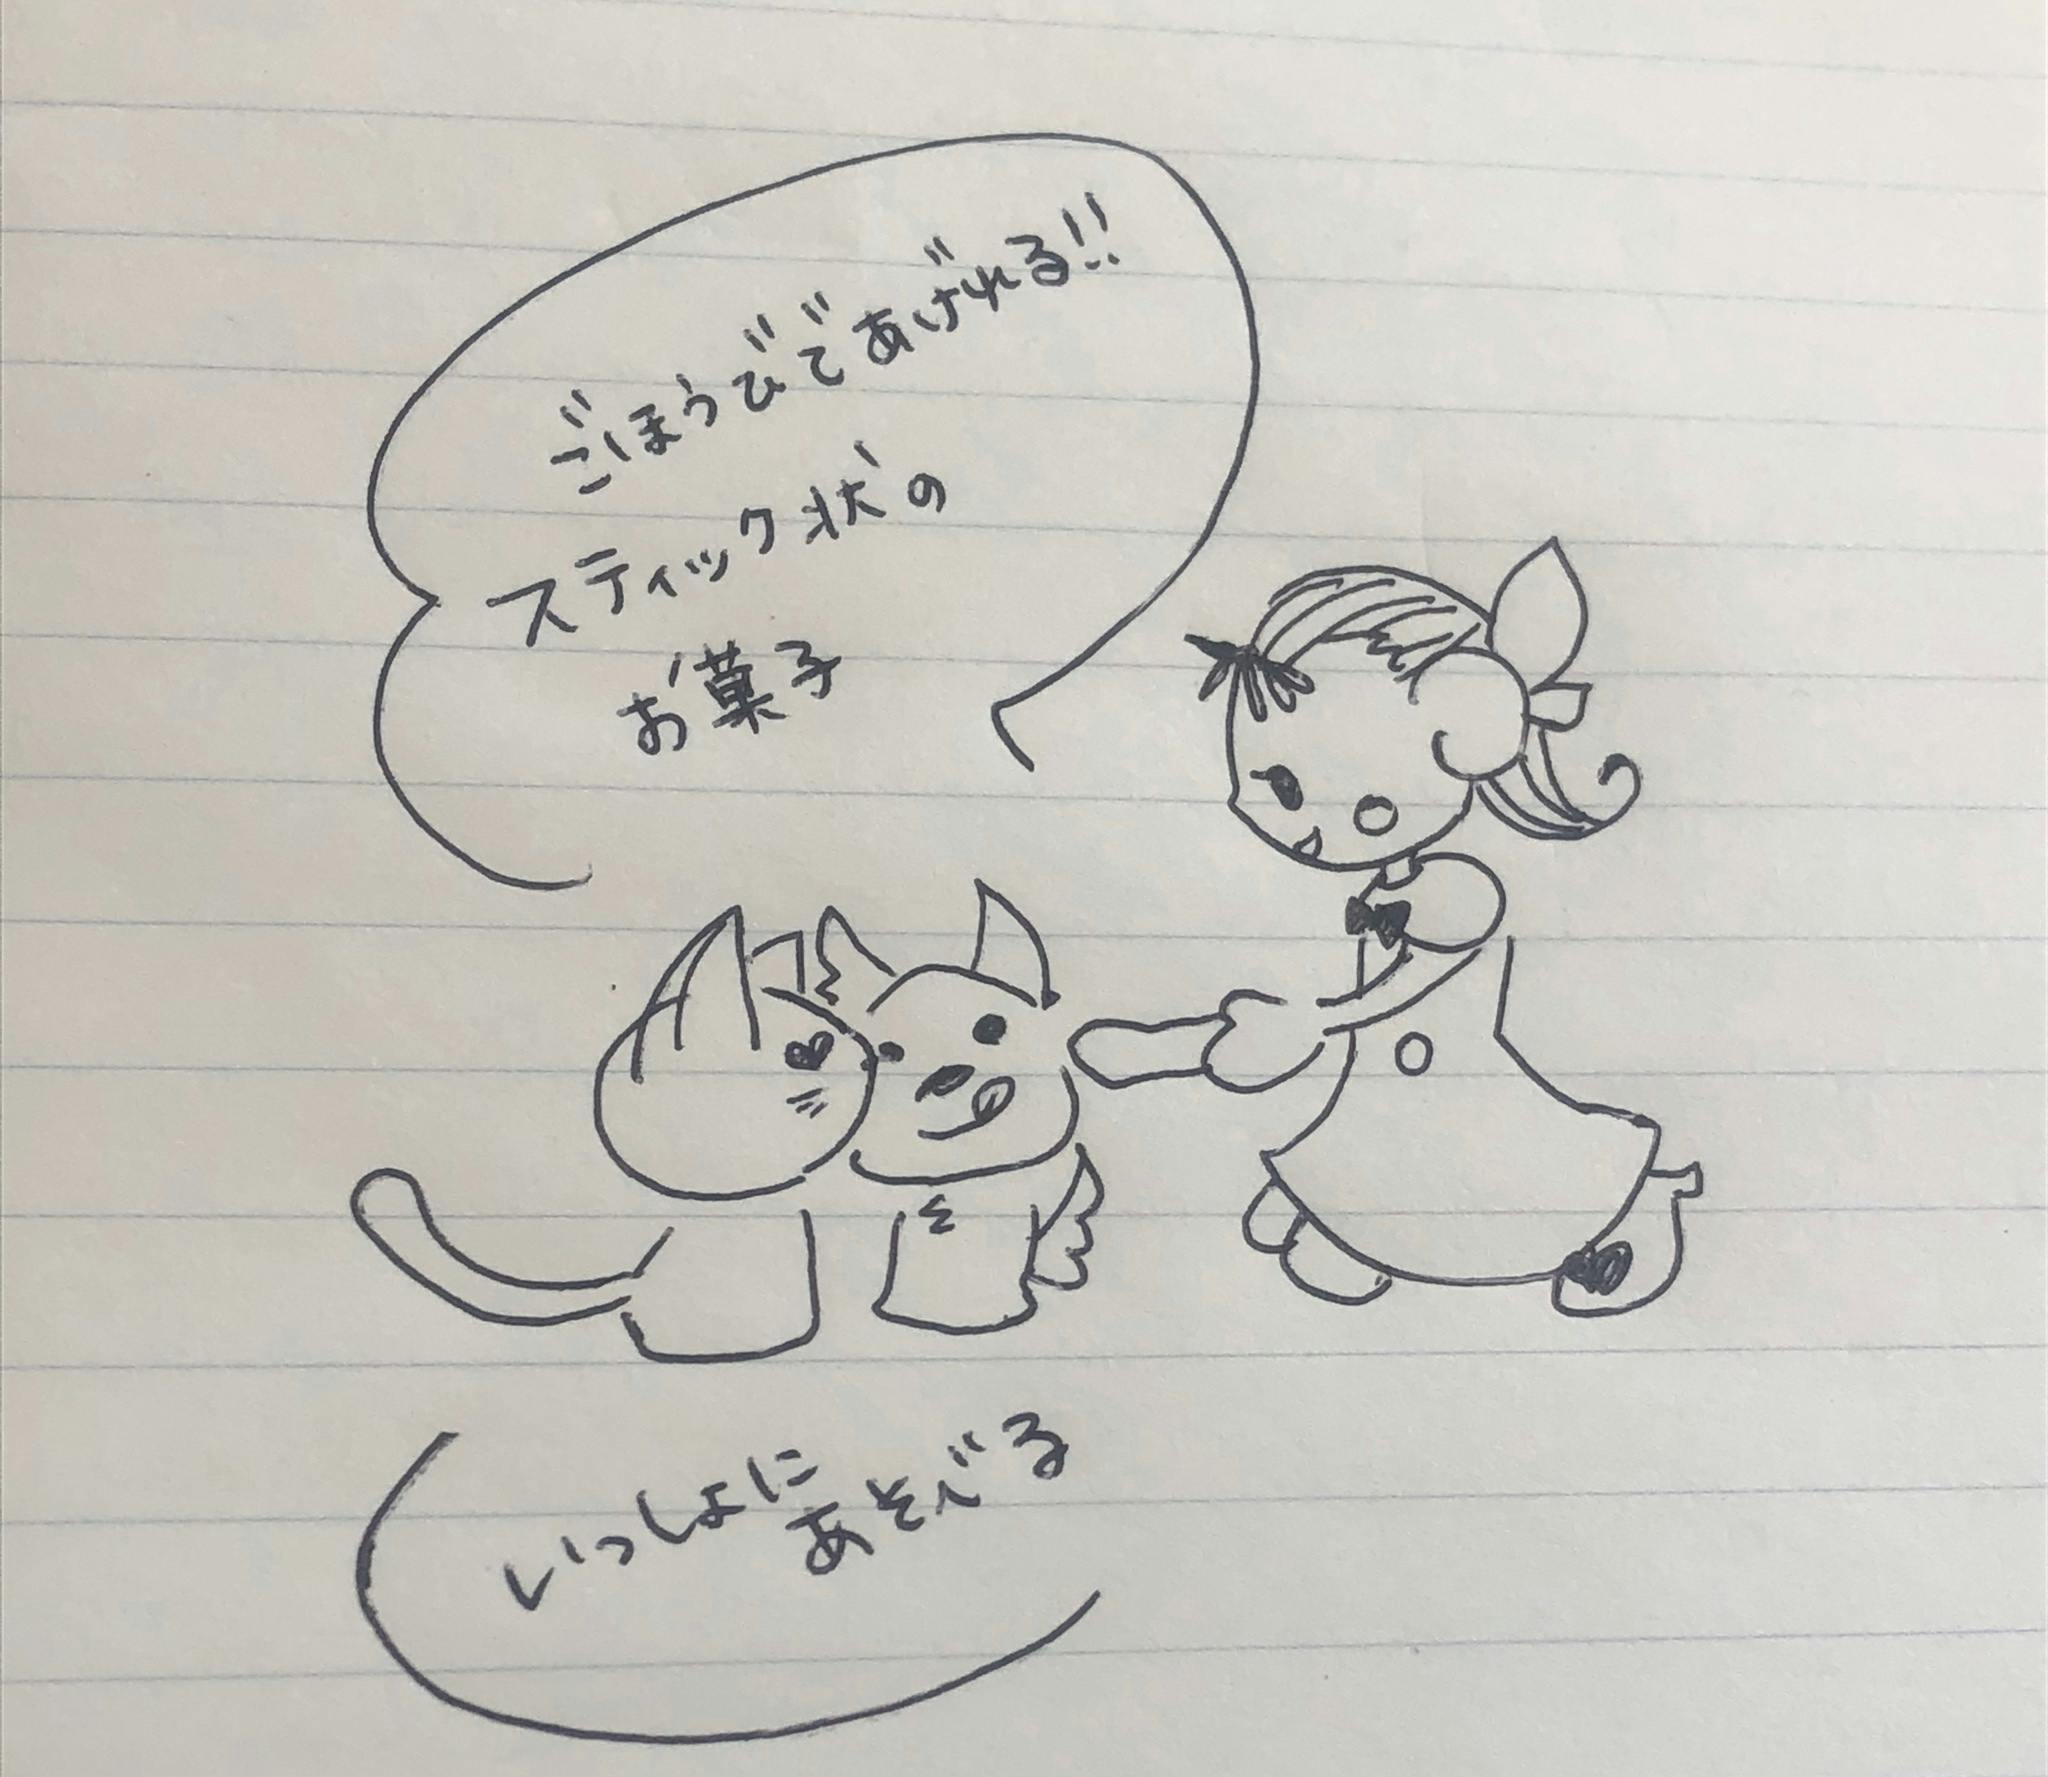 ごほうびであげれる!!
スティック状の
お菓子
いっしょに
あそべる